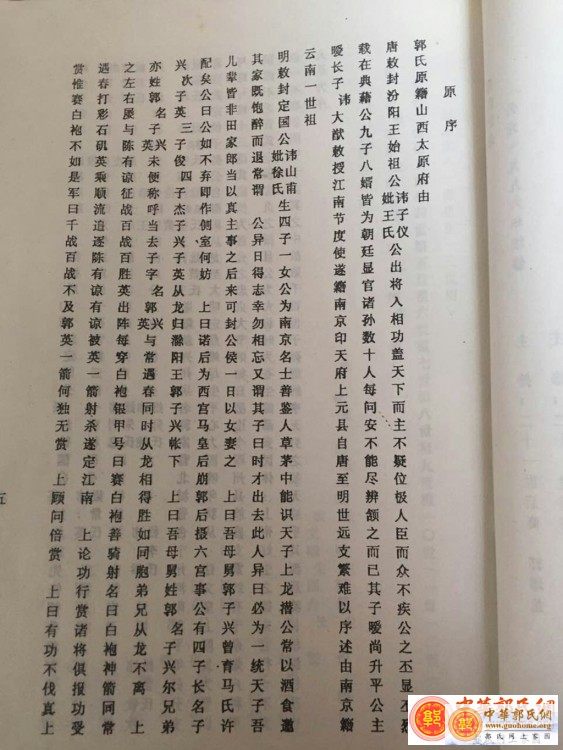 原序
郭氏原籍山西太原府由
唐敕封汾阳王始祖公讳子仪妣王氏公出将入相功盖天下而主不疑位极人臣而众不疾公之丕显丕烈
载在典藉公九子八婿皆为朝廷显官诸孙数十人每问安不能尽辨颔之而已其子暧尚升平公主
暧长子讳大猷敕授江南节度使遂籍南京印天府上元县自唐至明世远支繁难以序述由南京籍
云南一世祖
明敕封定国公讳山甫妣徐氏生四子一女公为南京名士善鉴人草茅中能识天子上龙潜公常以酒食邀
其家既饱醉而退常谓 公异日得志幸勿相忘又谓其子曰时才出去此人异曰必为一统天子吾
儿辈皆非田家郎当以真主事之后来可封公侯一日以女妻之 上曰吾母舅郭子兴曾育马氏许
配矣公曰公如不弃即作侧室何妨 上曰诺后为西宫马皇后崩郭后摄六宫事公有四子长名子
兴次子英三子俊四子杰子兴子英从龙归滁阳王郭子兴帐下 上曰吾母舅姓郭名子兴尔兄弟
亦姓郭名子兴子英未便称呼当去子字名兴名英与常遇春同时从龙相得胜如同胞弟兄从龙不离 上
之左右屡与陈有谅征战百战百胜英出阵每穿白袍银甲号曰赛白袍善骑射名曰白袍神箭同常
遇春打彩石矶英乘顺流追逐陈有谅有谅被英一箭射杀遂定江南 上论功行赏诸将俱报功受
赏惟赛白袍不如是军曰千战百战不及郭英一箭何独无赏 上顾问倍赏 上曰有功不伐真上
五
中华郭氏网
中華郭氏網
www.guohome.org
郭氏网上家园